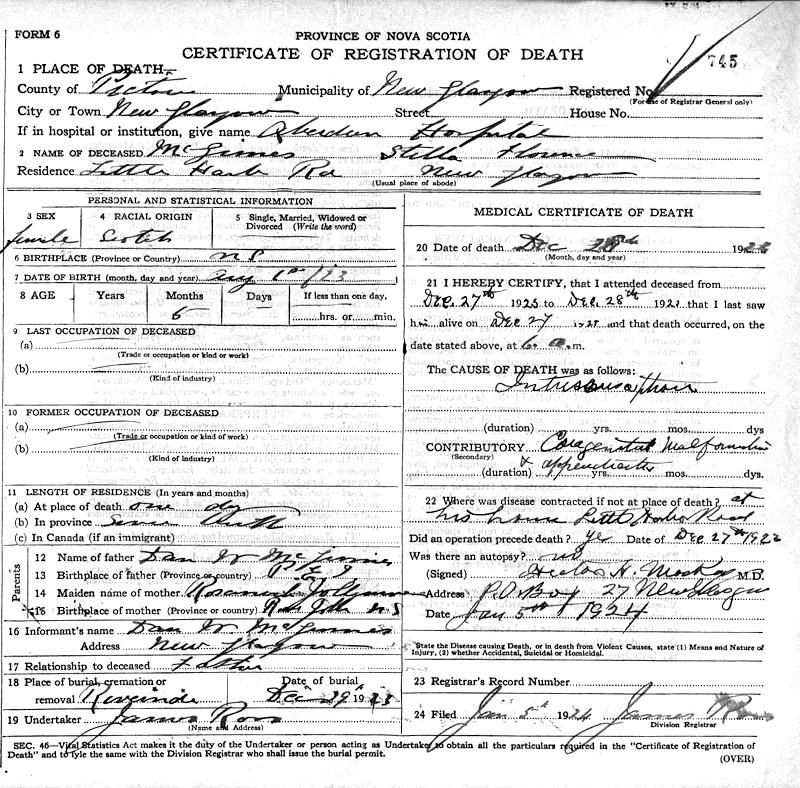 FORM 6
PROVINCE OF NOVA SCOTIA
CERTIFICATE OF REGISTRATION OF DEATH
745
1 PLACE OF DEATH—
County of Pictou Municipality of New Glasgow Registered No.
(For use of Registrar General only)
City or Town New Glasgow Street House No.
If in hospital or institution, give name Aberdeen Hospital
2 NAME OF DECEASED McGinnes Stella Florence
Residence Little Harb Rd New Glasgow
(Usual place of abode)
PERSONAL AND STATISTICAL INFORMATION
3 SEX 4 RACIAL ORIGIN 5 Single, Married, Widowed or Divorced (Write the word)
female Scotch
6 BIRTHPLACE (Province or Country) N S
7 DATE OF BIRTH (month, day and year) 1st /23
8 AGE Years Months Days If less than one day,
5 hrs. or min.
9 LAST OCCUPATION OF DECEASED
(a)
(Trade or occupation or kind or work)
(b)
(Kind of industry)
10 FORMER OCCUPATION OF DECEASED
(a)
(Trade or occupation or kind of work)
(b)
(Kind of industry)
11 LENGTH OF RESIDENCE (In years and months)
(a) At place of death one dy
(b) In province Since Birth
(c) In Canada (if an immigrant)
Parents
12 Name of father Dan W McGinnes
13 Birthplace of father (Province or country) P E I
14 Maiden name of mother
15 Birthplace of mother (Province or country) N S
16 Informant's name Dan W McGinnes
Address New Glasgow
17 Relationship to deceased Father
18 Place of burial, cremation or Date of burial
removal Riverside Dec 29 1923
19 Undertaker James Ross
(Name and Address)
MEDICAL CERTIFICATE OF DEATH
20 Date of death Dec 28th 192
(Month, day and year)
21 I HEREBY CERTIFY, that I attended deceased from
Dec. 27th 1923 to Dec. 28th 1923 that I last saw
h alive on Dec 27 and that death occurred, on the
date stated above, at 6 a.m.
The CAUSE OF DEATH was as follows:
Intussusception
(duration) yrs. mos. dys
CONTRIBUTORY Congenital Malformation
(Secondary) & appendicitis
(duration) yrs. mos. dys
22 Where was disease contracted if not at place of death? at
his home Little Harbor Road
Did an operation precede death? yes Date of Dec 27th 1923
Was there an autopsy? no
(Signed) Hector H. M.D.
Address P.O. Box 27 New Glasgow
Date Jan 5th 1924
State the Disease causing Death, or in death from Violent Causes, state (1) Means and Nature of
Injury, (2) whether Accidental, Suicidal or Homicidal.
23 Registrar's Record Number
24 Filed Jan 5th 1924 James Ross
Division Registrar
SEC. 46—Vital Statistics Act makes it the duty of the Undertaker or person acting as Undertaker to obtain all the particulars required in the "Certificate of Registration of
Death" and to fyle the same with the Division Registrar who shall issue the burial permit.
(OVER)